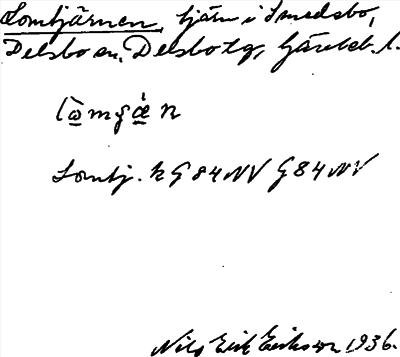 Lomtjärnen, tjärn i Smedsbo,
Delsbo sn, Delsbo tg, Gävleb. l.
lò̱mgæ̱̀n
Lomtj. k G 84 NV G 84 NV
Nils Erik Eriksson 1936.